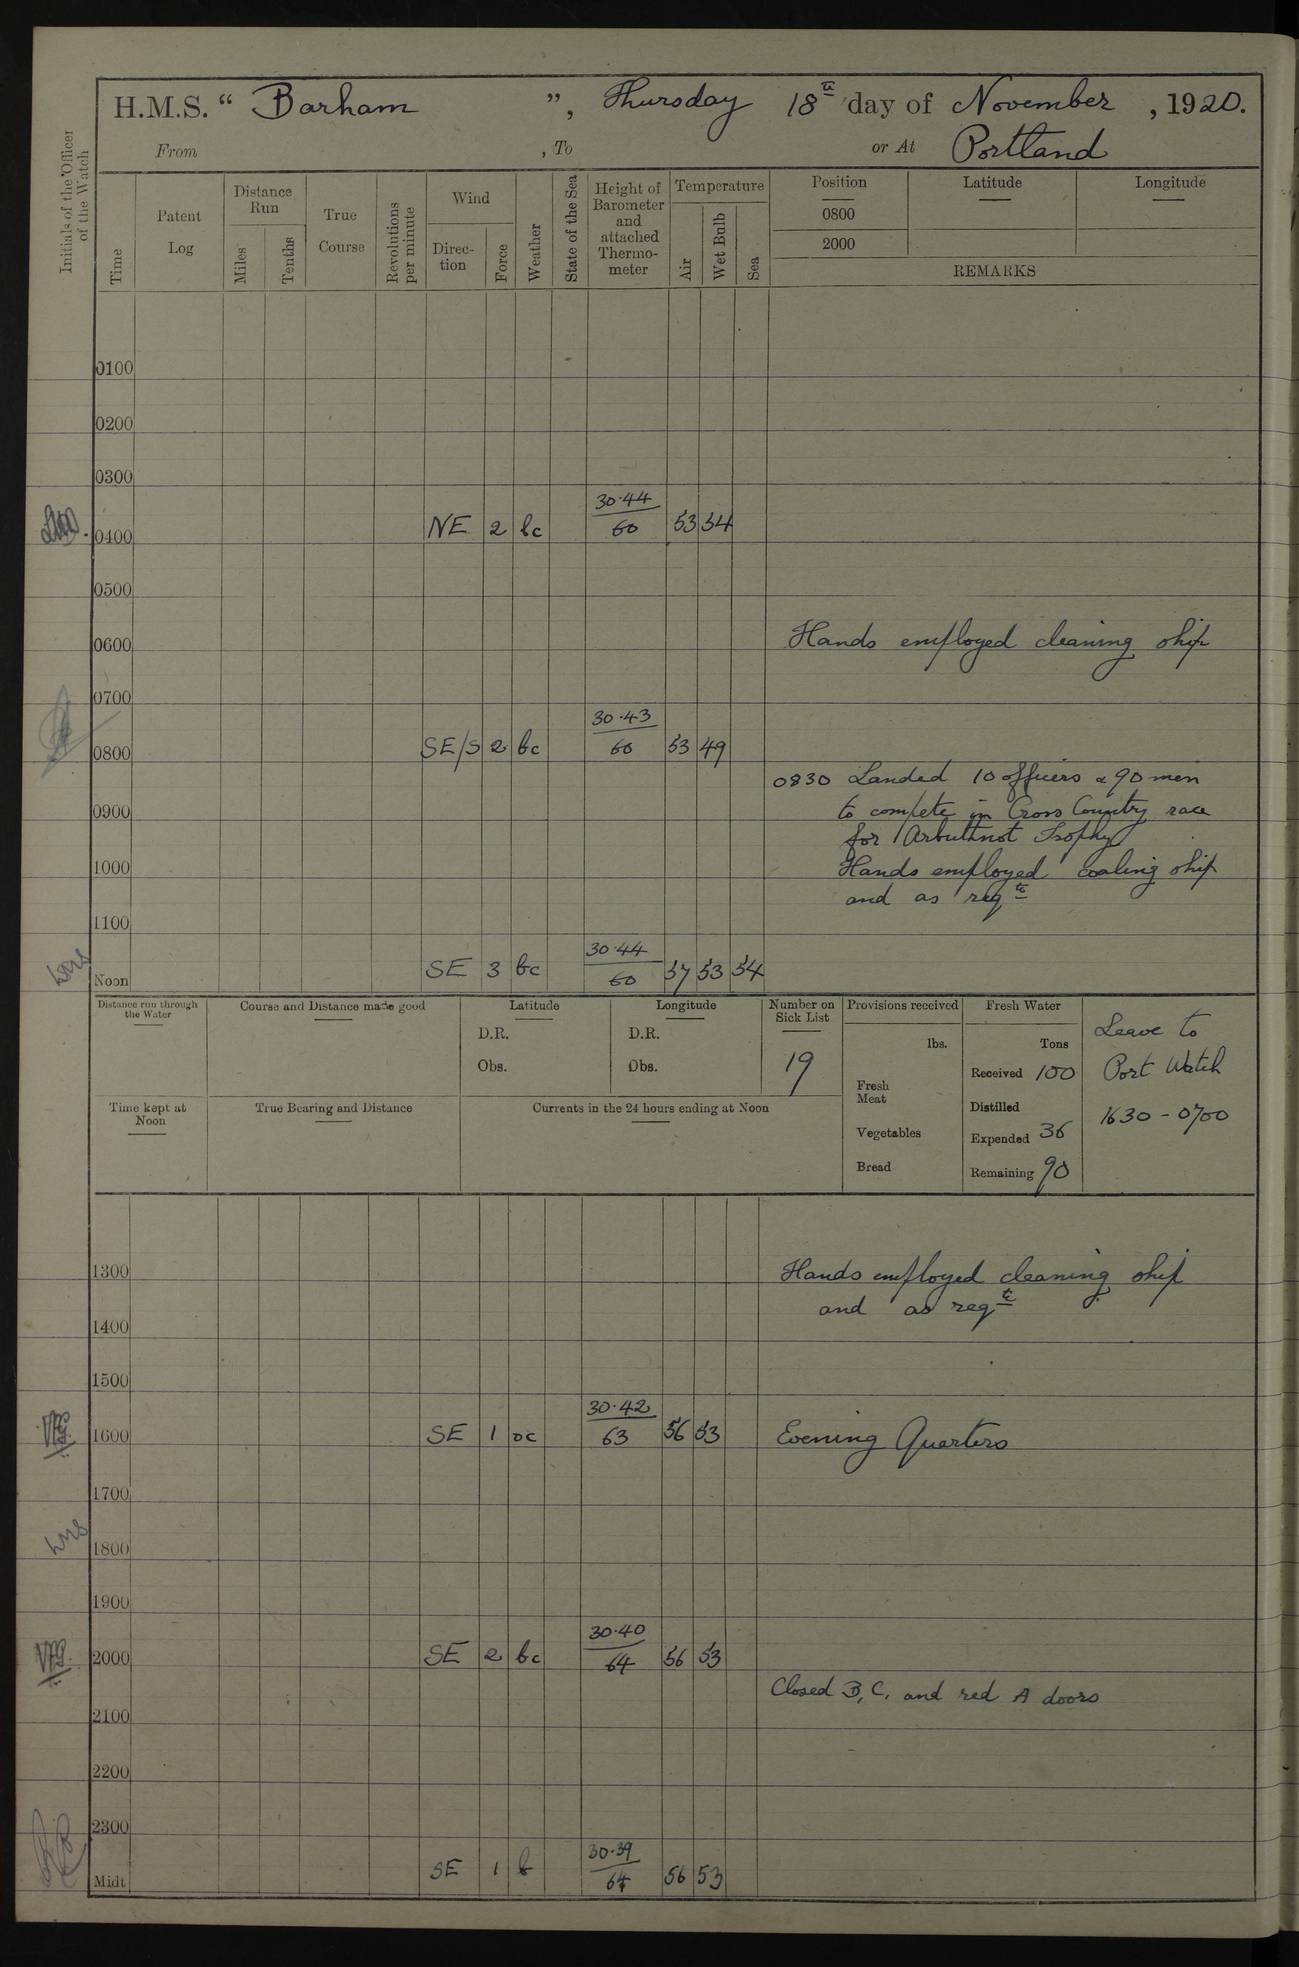 H.M.S. “ Barham ”, Thursday 18th day of November , 1920.
From , To or At Portland
Initials of the Officer of the Watch
Time
Patent Log
Distance Run
Miles
Tenths
True Course
Revolutions per minute
Wind
Direc-tion
Force
Weather
State of the Sea
Height of Barometer and attached Thermo-meter
Temperature
Air
Wet Bulb
Sea
Position
0800
2000
Latitude
Longitude
REMARKS
0100
0200
0300
30.44
0400 NE 2 bc 60 53 54
0500
0600 Hands employed cleaning ship
0700
30.43
0800 SE/S 2 bc 60 53 49
0830 Landed 10 officers & 90 men
0900 to compete in Cross Country race
for Arbuthnot Trophy
1000 Hands employed coaling ship
and as reqte
1100
30.44
Noon SE 3 bc 60 57 53 54
Distance run through the Water
Course and Distance made good
Latitude
D.R.
Obs.
Longitude
D.R.
Obs.
Number on Sick List
19
Provisions received
lbs.
Fresh Meat
Vegetables
Bread
Fresh Water
Tons
Received 100
Distilled
Expended 36
Remaining 90
Leave to
Port Watch
1630 - 0700
Time kept at Noon
True Bearing and Distance
Currents in the 24 hours ending at Noon
1300 Hands employed cleaning ship
and as reqte
1400
1500
30.42
1600 SE 1 oc 63 56 53 Evening Quarters
1700
1800
1900
30.40
2000 SE 2 bc 64 56 53
Closed B, C, and red A doors
2100
2200
2300
30.39
Midt SE 1 b 64 56 53